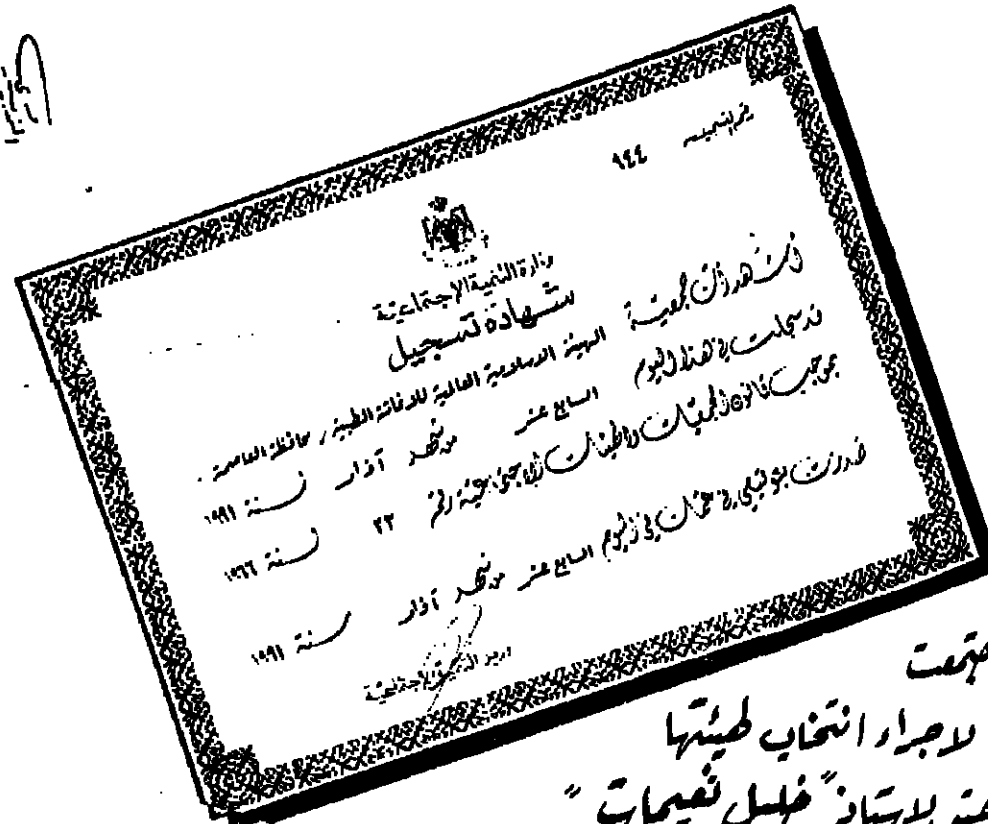 رقم التسجيل ٩٤٤
وزارة التنمية الاجتماعية
شهادة تسجيل
أشهد أن جمعية الهيئة الاسلامية العالمية للاغاثة الطبية / محافظة العاصمة .
قد سجلت في هذا اليوم السابع عشر من شهر آذار لسنة ١٩٩١
بموجب قانون الجمعيات والهيئات الاجتماعية رقم ٣٣ لسنة ١٩٦٦
صدرت بتوقيعي في عمان في اليوم السابع عشر من شهر آذار سنة ١٩٩١
وزير التنمية الاجتماعية
اجتمعت
لاجراء انتخاب هيئتها
الاستاذ " خليل نعيمات "